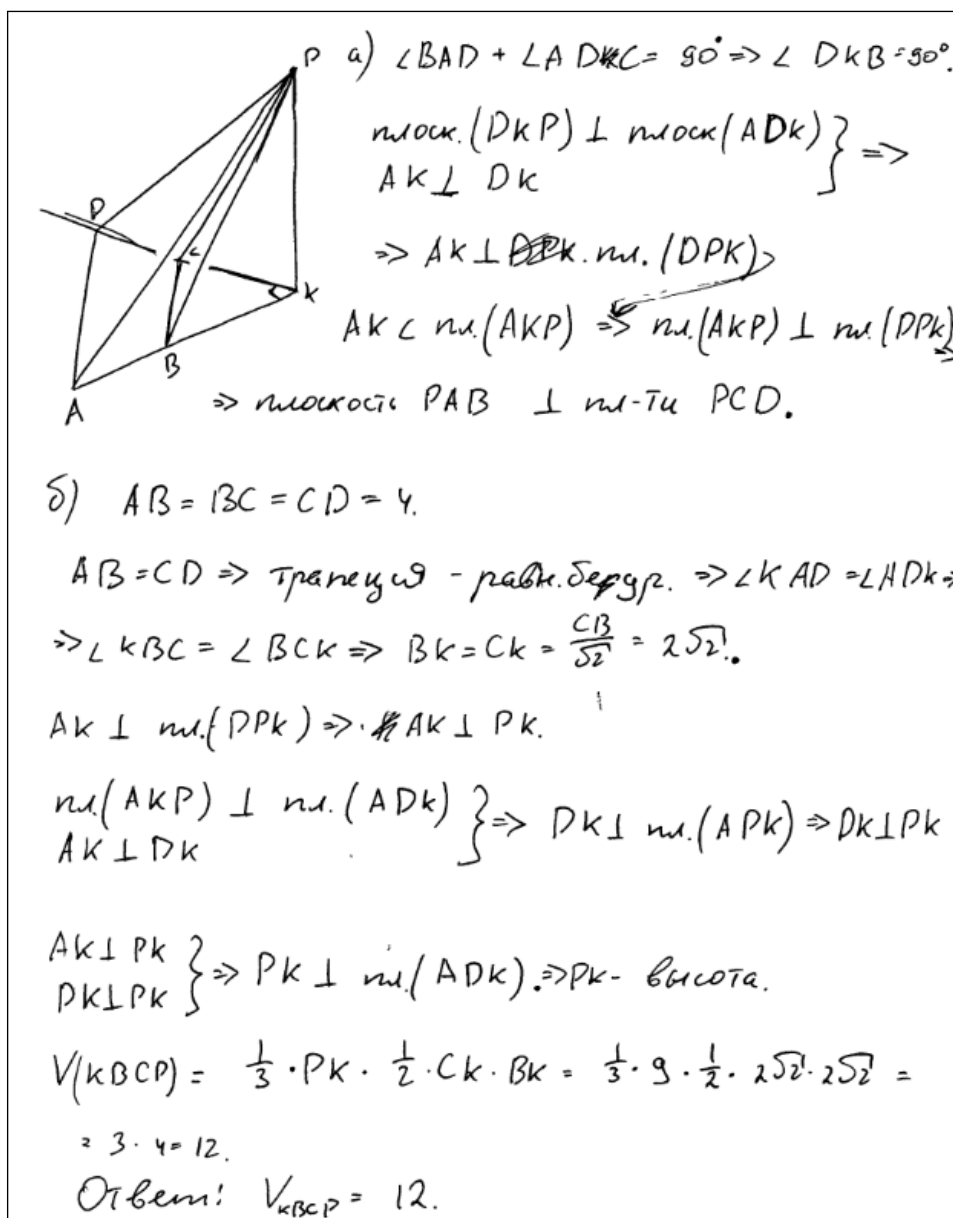 P
D
C
K
B
A
а) ∠BAD + ∠ADC = 90° => ∠ DKB = 90°.
плоск.(DKP) ⊥ плоск(ADK)
AK ⊥ DK } =>
=> AK ⊥ пл. (DPK)
AK ⊂ пл.(AKP) => пл.(AKP) ⊥ пл.(DPK) =>
=> плоскость PAB ⊥ пл-ти PCD.
б) AB = BC = CD = 4.
AB = CD => трапеция - равнобедр. => ∠KAD = ∠ADK =>
=> ∠KBC = ∠BCK => BK = CK = CB/√2 = 2√2.
AK ⊥ пл.(DPK) => AK ⊥ PK.
пл.(AKP) ⊥ пл.(ADK)
AK ⊥ DK } => DK ⊥ пл.(APK) => DK ⊥ PK
AK ⊥ PK
DK ⊥ PK } => PK ⊥ пл.(ADK). => PK - высота.
V(KBCP) = 1/3 · PK · 1/2 · CK · BK = 1/3 · 9 · 1/2 · 2√2 · 2√2 =
= 3 · 4 = 12.
Ответ: V_KBCP = 12.